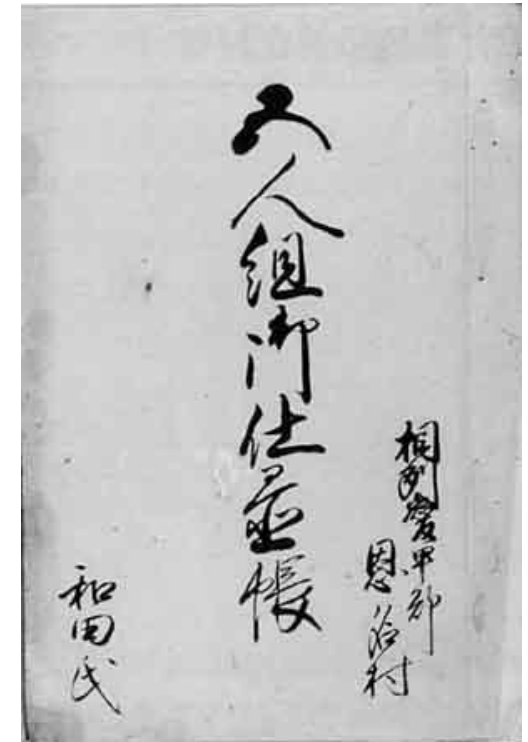 相州愛甲郡
恩名村
五人組御仕置帳
和田氏